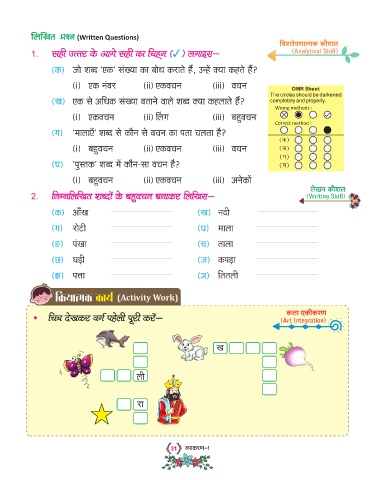 लिखित प्रश्न (Written Questions)
विश्लेषणात्मक कौशल
(Analytical Skill)
1. सही उत्तर के आगे सही का चिह्न (✓) लगाइए–
(क) जो शब्द 'एक' संख्या का बोध कराते हैं, उन्हें क्या कहते हैं?
(i) एक नंबर (ii) एकवचन (iii) वचन
(ख) एक से अधिक संख्या बताने वाले शब्द क्या कहलाते हैं?
(i) एकवचन (ii) लिंग (iii) बहुवचन
(ग) 'मालाएँ' शब्द से कौन से वचन का पता चलता है?
(i) बहुवचन (ii) एकवचन (iii) वचन
(घ) 'पुस्तक' शब्द में कौन-सा वचन है?
(i) बहुवचन (ii) एकवचन (iii) अनेकों
OMR Sheet
The circles should be darkened
completely and properly.
Wrong methods :
Correct method :
(क)
(ख)
(ग)
(घ)
लेखन कौशल
(Writing Skill)
2. निम्नलिखित शब्दों के बहुवचन बनाकर लिखिए–
(क) आँख (ख) नदी
(ग) रोटी (घ) माला
(ङ) पंखा (च) ताला
(छ) घड़ी (ज) कपड़ा
(झ) पत्ता (ञ) तितली
क्रियात्मक कार्य (Activity Work)
कला एकीकरण
(Art Integration)
• चित्र देखकर वर्ग पहेली पूरी करें–
ख
ली
रा
31 व्याकरण-1